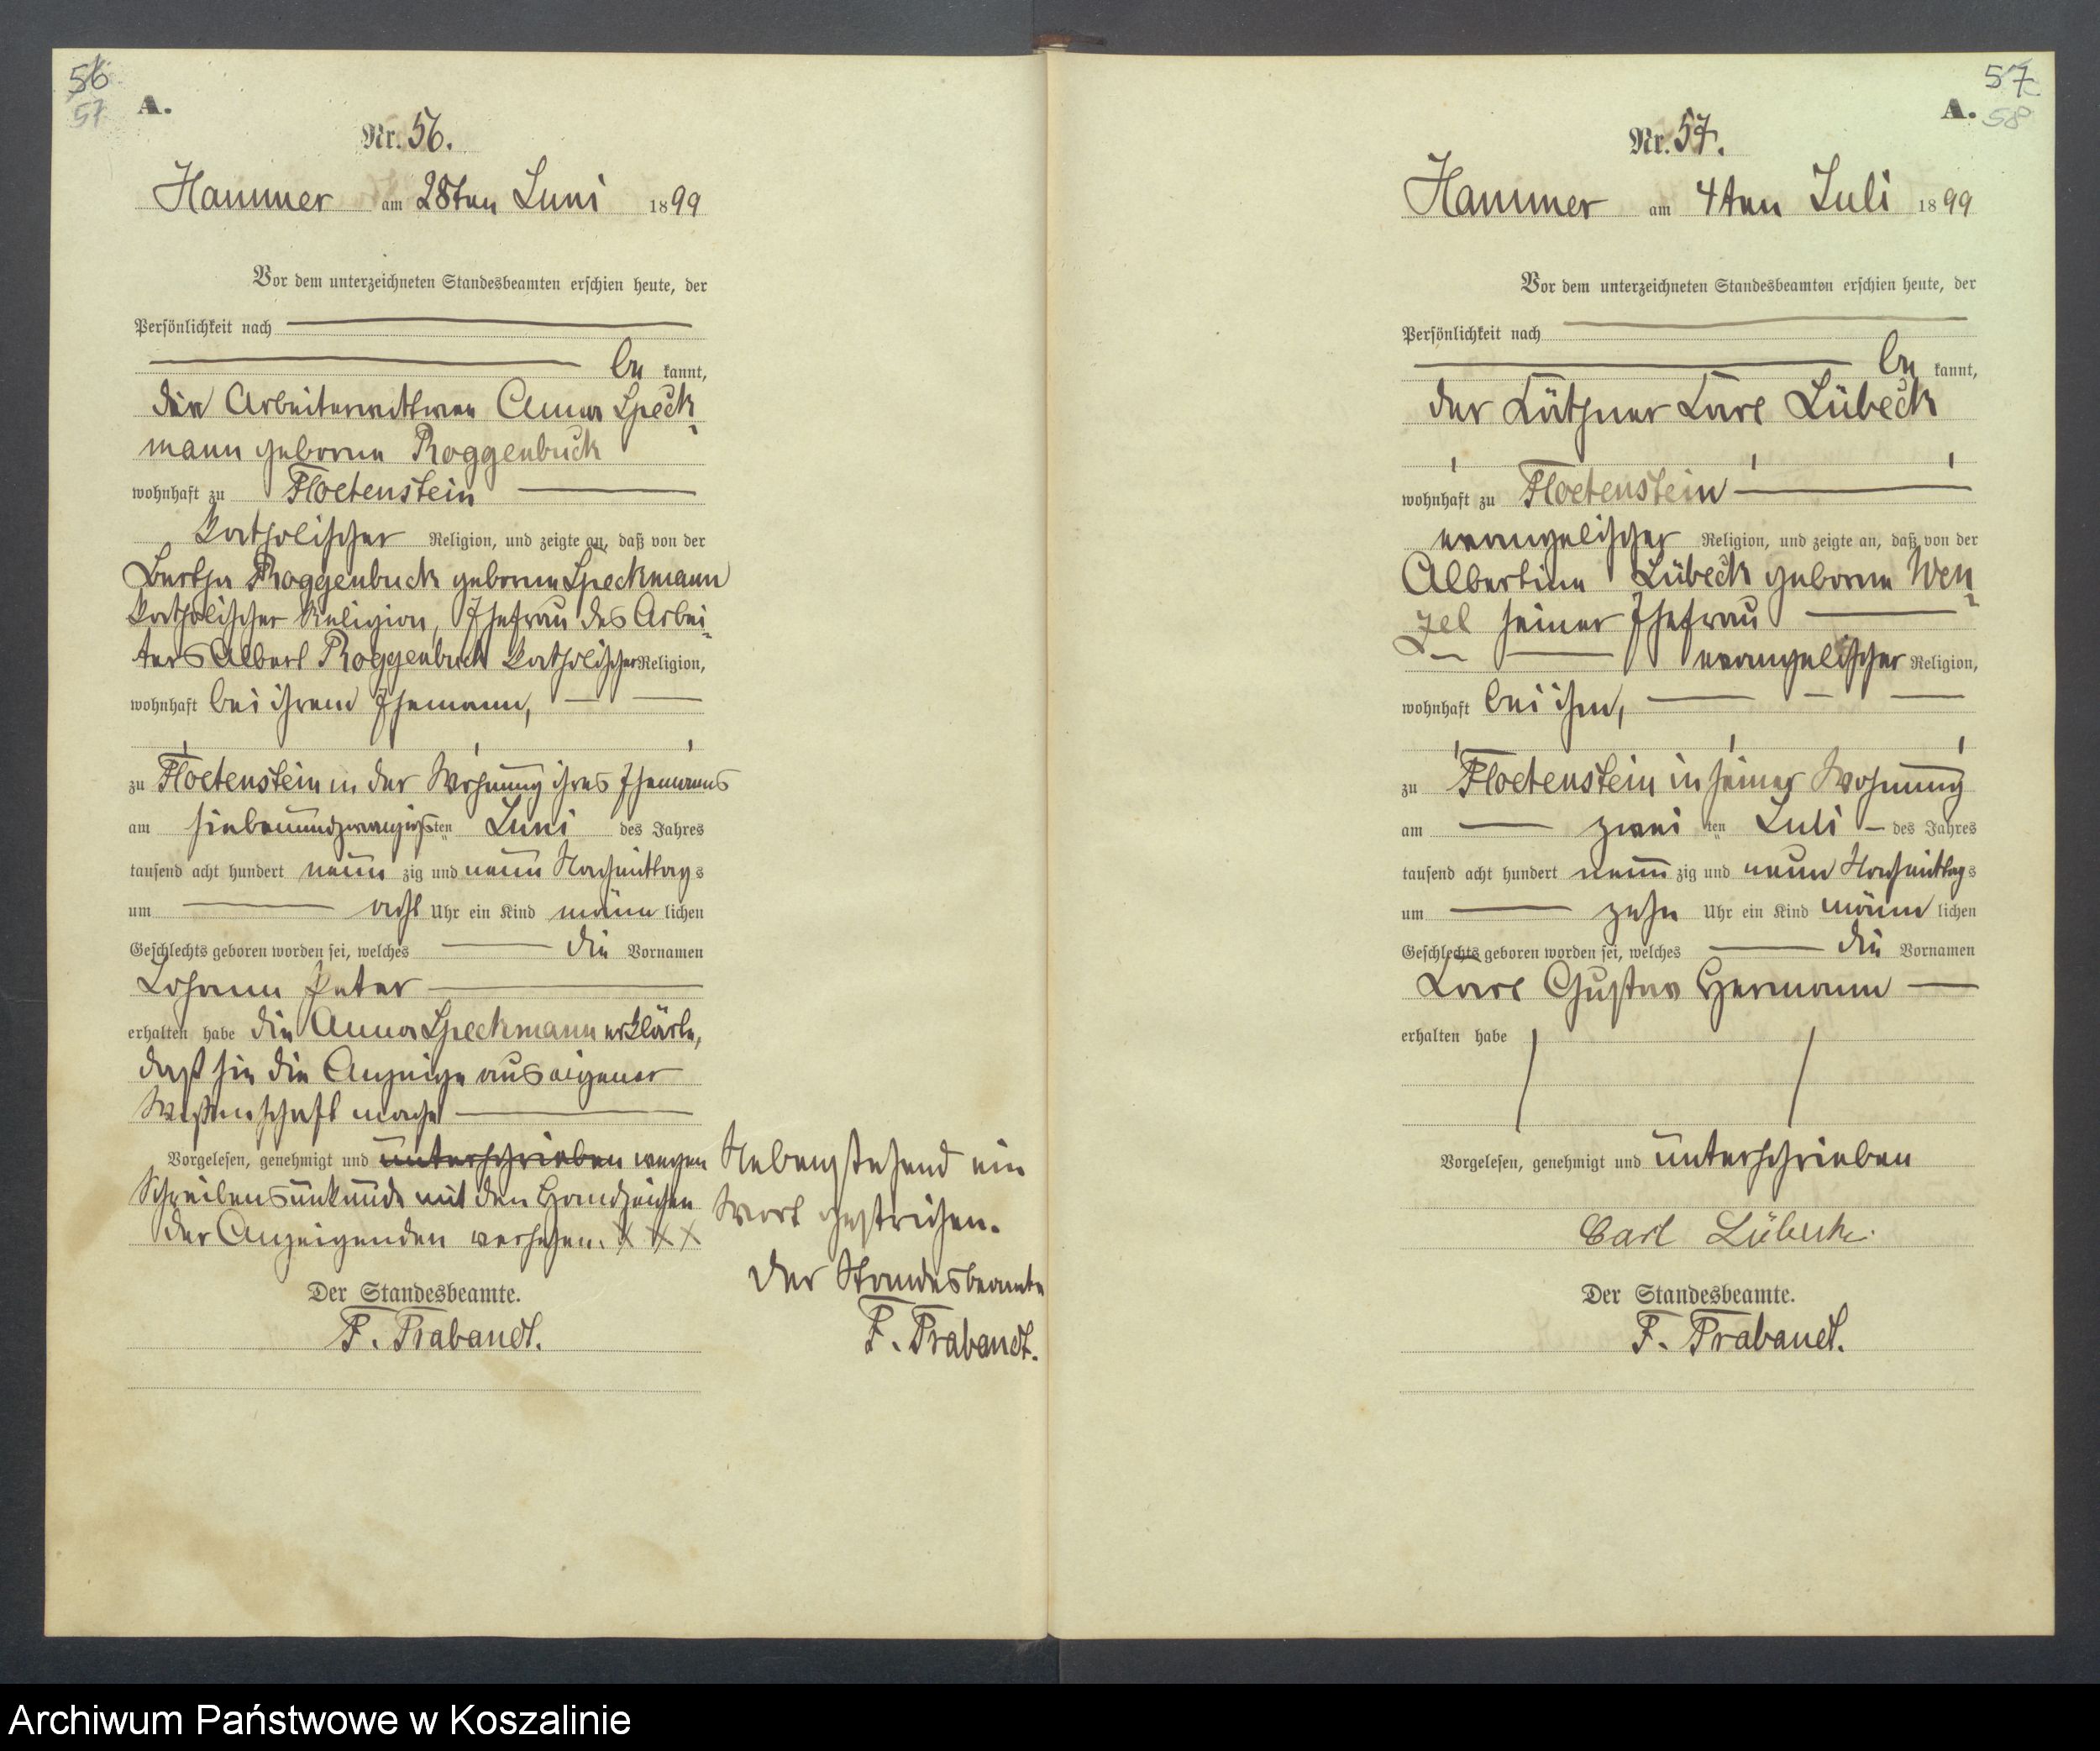 56
57
A.
Nr. 56.
Hammer am 28ten Juni 1899
Vor dem unterzeichneten Standesbeamten erschien heute, der
Persönlichkeit nach
be kannt,
die Arbeiterwittwe Anna Speck-
mann geborne Roggenbuck
wohnhaft zu Floetenstein
katholischer Religion, und zeigte an, daß von der
Bertha Roggenbuck geborne Speckmann
katholischer Religion, Ehefrau des Arbei-
ters Albert Roggenbuck katholischer Religion,
wohnhaft bei ihrem Ehemann,
zu Floetenstein in der Wohnung ihres Ehemanns
am siebenundzwanzigsten Juni des Jahres
tausend acht hundert neun zig und neun Nachmittags
um acht Uhr ein Kind männ lichen
Geschlechts geboren worden sei, welches die Vornamen
Johann Peter
erhalten habe die Anna Speckmann erklärte,
daß sie die Anzeige aus eigener
Wissenschaft mache
Vorgelesen, genehmigt und unterschrieben wegen
Schreibensunkunde mit den Handzeichen
der Anzeigenden versehen. X X X
Der Standesbeamte.
F. Trabandt.
Nebenstehend ein
Wort gestrichen.
Der Standesbeamte
F. Trabandt.
57
58
A.
Nr. 57.
Hammer am 4ten Juli 1899
Vor dem unterzeichneten Standesbeamten erschien heute, der
Persönlichkeit nach
be kannt,
der Käthner Karl Lübeck
wohnhaft zu Floetenstein
evangelischer Religion, und zeigte an, daß von der
Albertine Lübeck geborne Wen-
zel seiner Ehefrau
evangelischer Religion,
wohnhaft bei ihm,
zu Floetenstein in seiner Wohnung
am zwei ten Juli des Jahres
tausend acht hundert neun zig und neun Nachmittags
um zehn Uhr ein Kind männ lichen
Geschlechts geboren worden sei, welches die Vornamen
Karl Gustav Hermann
erhalten habe
Vorgelesen, genehmigt und unterschrieben
Carl Lübeck.
Der Standesbeamte.
F. Trabandt.
Archiwum Państwowe w Koszalinie